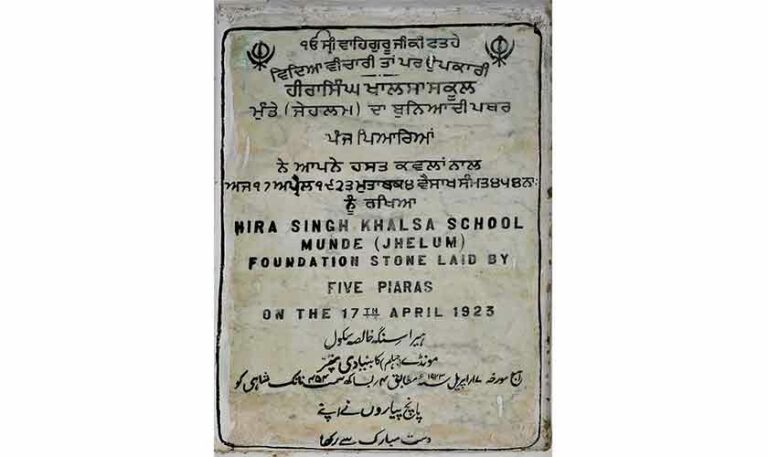 ੧ਓ ਸ੍ਰੀ ਵਾਹਿਗੁਰੂ ਜੀ ਕੀ ਫਤਹੇ
ਵਿਦਿਆ ਵੀਚਾਰੀ ਤਾਂ ਪਰਉਪਕਾਰੀ
ਹੀਰਾ ਸਿੰਘ ਖਾਲਸਾ ਸਕੂਲ
ਮੁੰਡੇ (ਜੇਹਲਮ) ਦਾ ਬੁਨਿਆਦੀ ਪਥਰ
ਪੰਜ ਪਿਆਰਿਆਂ
ਨੇ ਆਪਨੇ ਹਸਤ ਕਵਲਾਂ ਨਾਲ
ਅਜ ੧੭ ਅਪ੍ਰੈਲ ੧੯੨੩ ਮੁਤਾਬਕ ੪ ਵੈਸਾਖ ਸੰਮਤ ੪੫੪ ਨਾ:
ਨੂੰ ਰਖਿਆ
HIRA SINGH KHALSA SCHOOL
MUNDE (JHELUM)
FOUNDATION STONE LAID BY
FIVE PIARAS
ON THE 17TH APRIL 1923
ہیرا سنگھ خالصہ سکول
مونڈے (جہلم) کا بنیادی پتھر
آج مورخہ ۱۷ اپریل سنہ ۱۹۲۳ء مطابق ۴ بیساکھ سمت ۴۵۴ نانک شاہی کو
پانچ پیاروں نے اپنے
دست مبارک سے رکھا